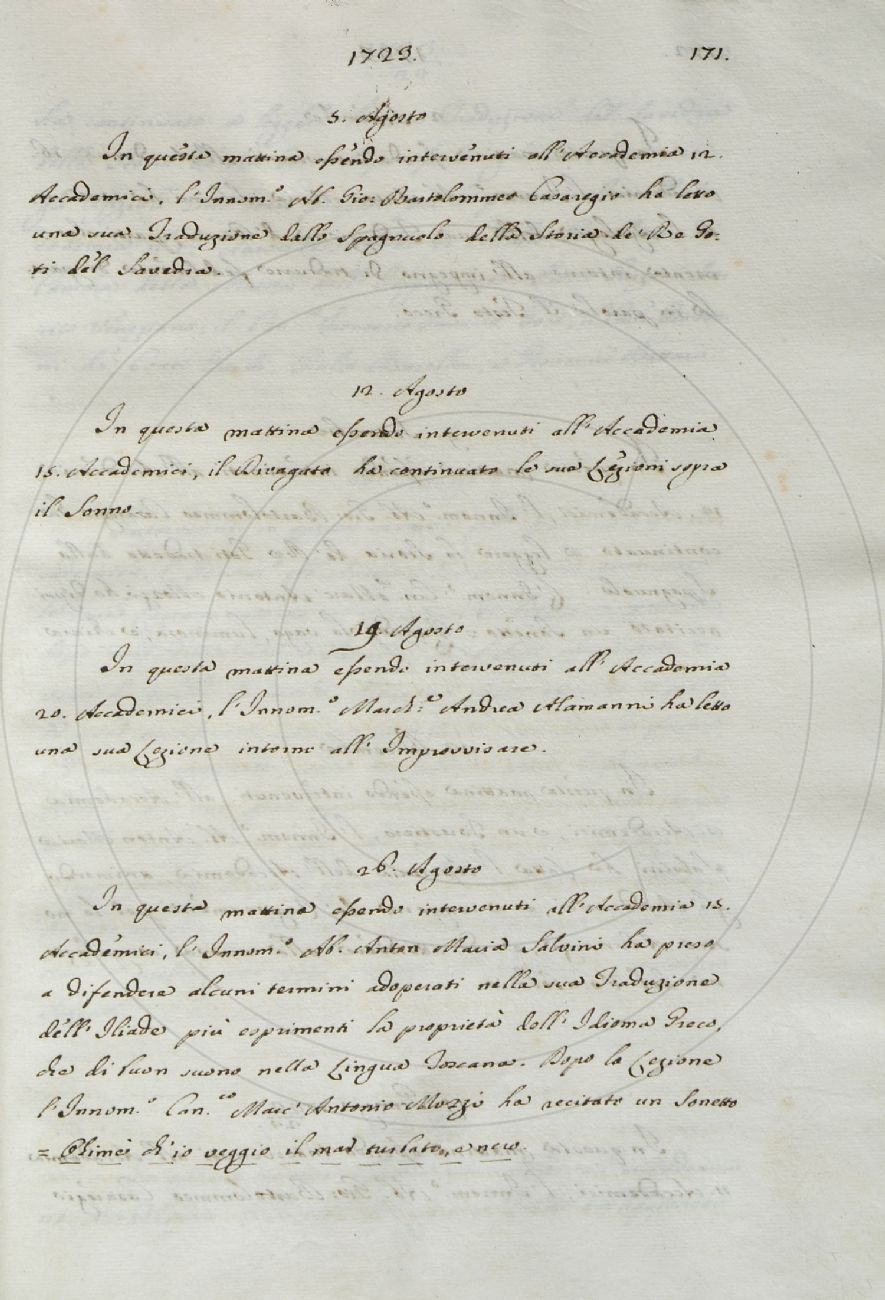 1723. 171.
5. Agosto
In questa mattina essendo intervenuti all'Accademia 12.
Accademici, l'Innom.º Ab. Gio: Bartolommeo Casaregio ha letto
una sua Traduzione dallo Spagnuolo della Storia de' Re Go-
ti del Savedra.
12. Agosto
In questa mattina essendo intervenuti all'Accademia
15. Accademici, il Divagato ha continuato le sue Lezioni sopra
il Sonno
19. Agosto
In questa mattina essendo intervenuti all'Accademia
20. Accademici, l'Innom.º March.e Andrea Alamanni ha letto
una sua Lezione intorno all'Improvvisare.
26. Agosto
In questa mattina essendo intervenuti all'Accademia 15.
Accademici, l'Innom.º Ab. Anton Maria Salvini ha preso
a difendere alcuni termini adoperati nella sua Traduzione
dell'Iliade più esprimenti la proprietà dell'Idioma Greco,
che di buon suono nella Lingua Toscana. Dopo la Lezione
l'Innom.º Can.co Marc'Antonio Mozzi ha recitato un Sonetto
= Ohimei ch'io veggio il mar turbato, e nero.